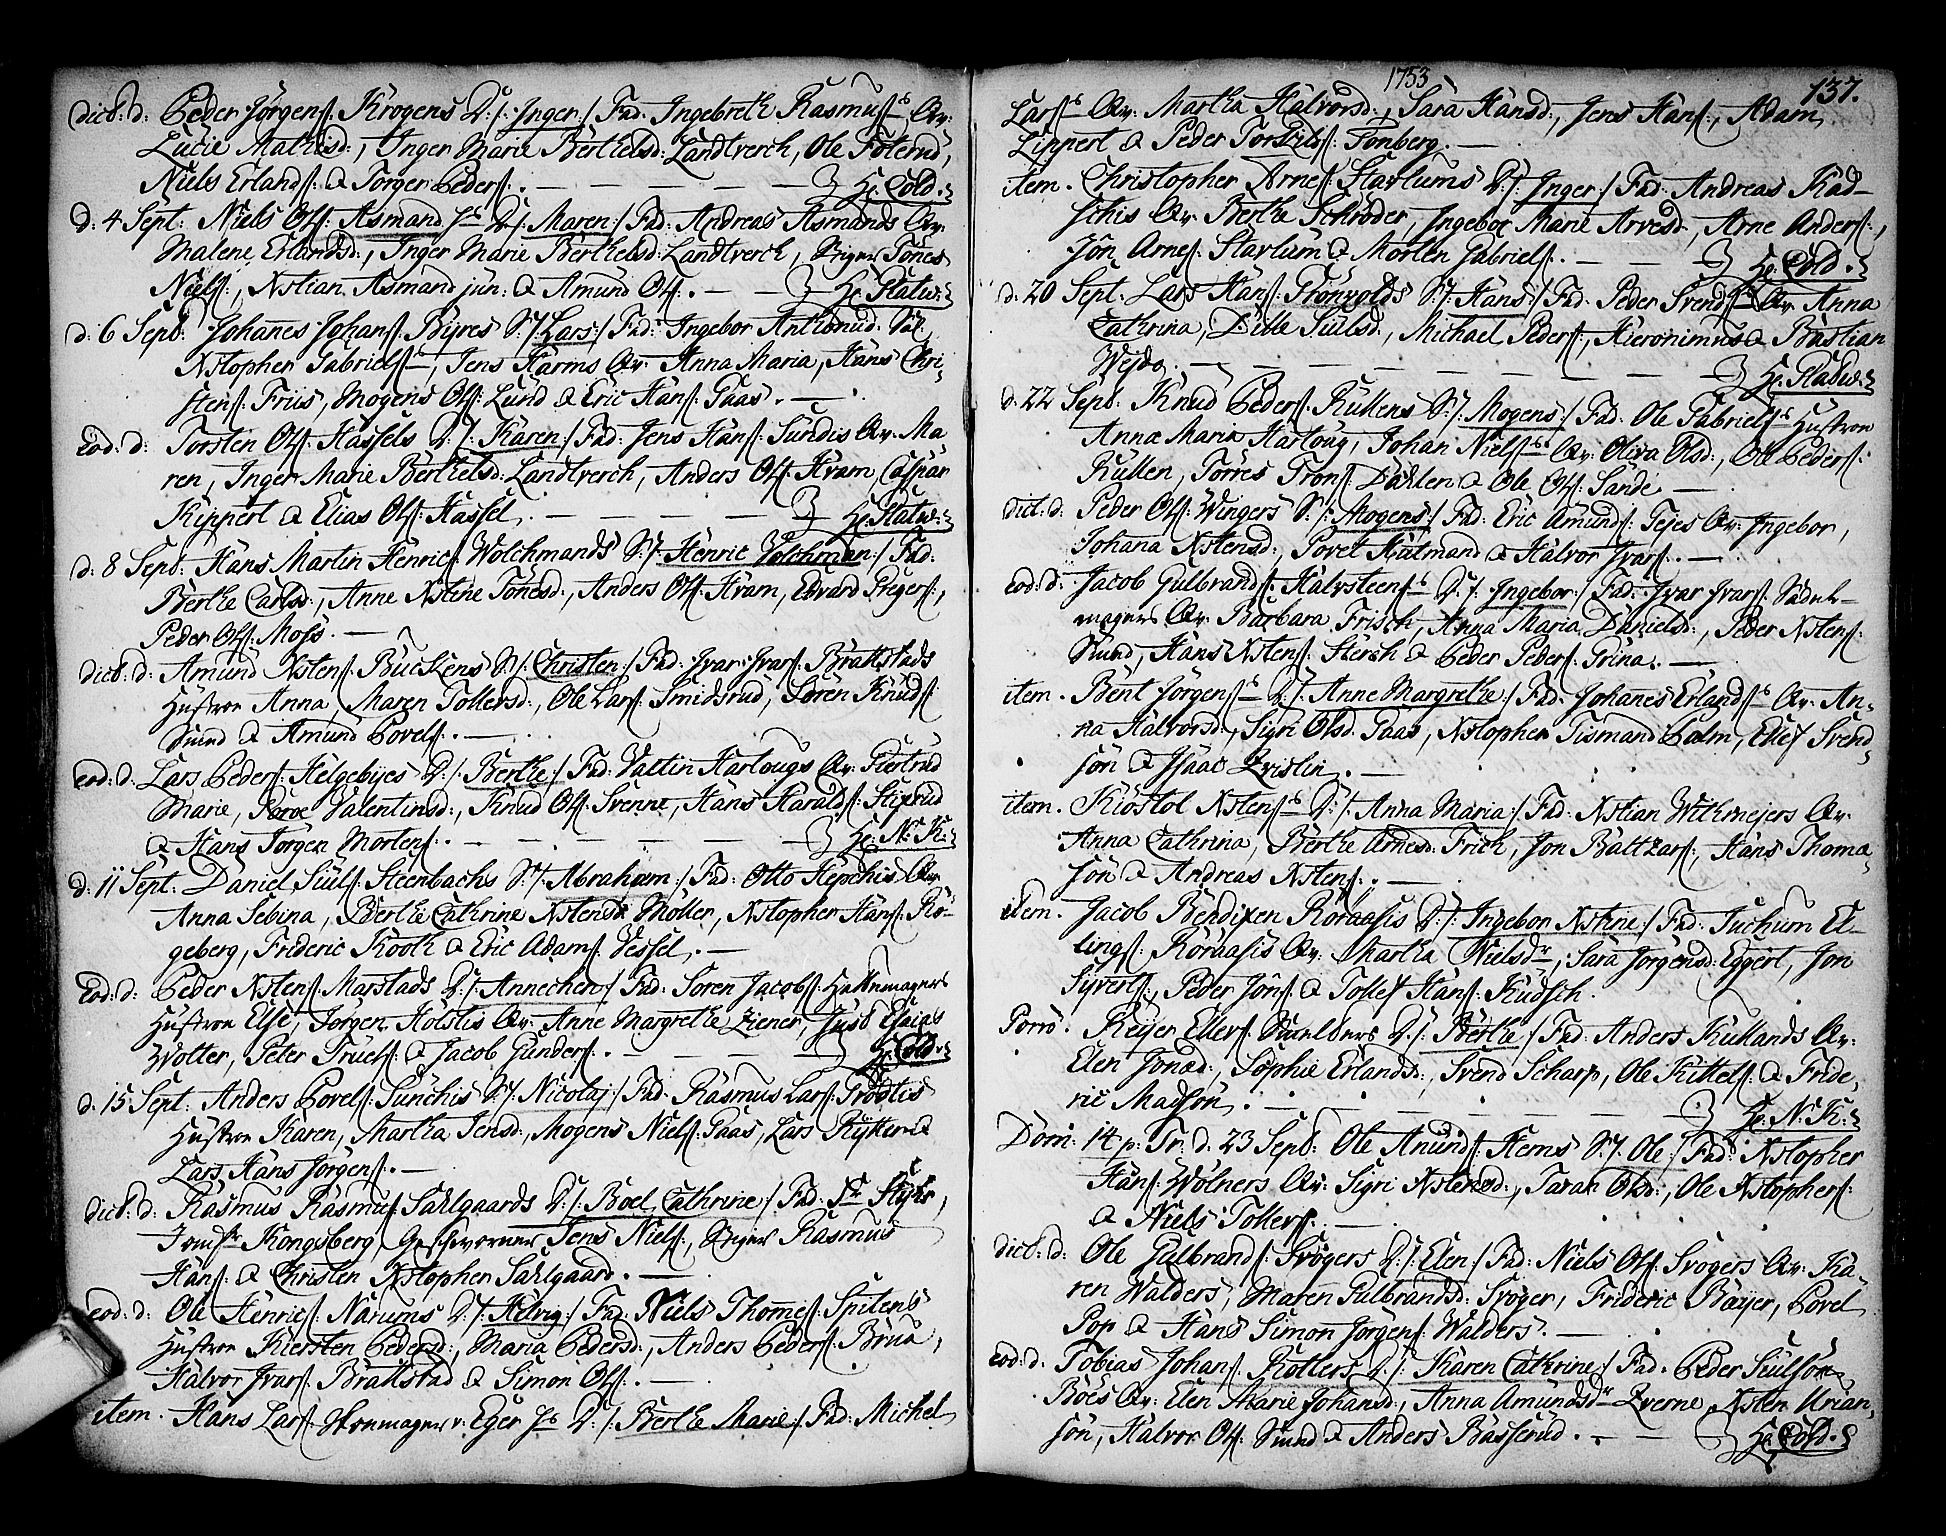 dict: d: Peder Jörgens: Krogens D:/: Inger:/ Fad: Ingebreth Rasmuss Qv:
Lucie Mathisd:, Inger Marie Berthelsd: Landtverch, Ole Tolerud,
Niels Erlands: & Torger Peders:. — — — Hr. Cold.
d: 4 Sept: Niels Ols: Asmand Js D:/: Maren:/ Fad: Andreas Asmands Qv:
Malene Erlandsd:, Inger Marie Berthelsd: Landtverch, Tönes
Niels:, Xstian Asmand jün: & Amund Ols:. — — Hr. Platw:
d: 6 Sept: Johanes Johans: Byres S:/: Lars:/ Fad: Ingebor Antonüd: Sal.
Xstopher Gabriels:, Jens Harms Qv: Anna Maria, Hans Chri-
stens: Friis, Mogens Ols: Lund & Eric Hans: Paas. —
eod: d: Torsten Ols: Hassels D:/: Karen:/ Fad: Jens Hans: Sundis Qv: Ma
ren, Inger Marie Berthelsd: Landtverch, Anders Ols: Kram, Caspar
Kippert & Elias Ols: Hassel. — — — Hr. Platw:
d: 8 Sept: Hans Martin Henrics: Wolchmands S:/: Henric Volchman:/ Fad:
Berthe Carlsd:, Anne Xstine Tönesd:, Anders Ols: Kram, Edvard Regers:,
Peder Ols: Moss. —
dict: d: Amund Xstens: Buckens S:/: Christen:/ Fad: Jvar Jvars: Brattstads
Hustroe Anna, Maren Tollersd:, Ole Lars: Smidsrud, Sören Knüds:
Smed & Amund Povels:. —
eod: d. Lars Peders: Helgebyes D:/: Berthe:/ Fad: Valtin Hartougs Qv: Giertrud
Marie, Valentinsd:, Knud Ols: Svenne, Hans Haralds: Stiprud
& Hans Jörgen Mortens:. — — — Hr. N: K:
d: 11 Sept: Daniel Siuls: Steenbachs S:/: Abraham:/ Fad: Otto Hepchis Qv:
Anna Sebina, Berthe Cathrine Xstensd: Möller, Xstopher Hans: Rö-
geberg, Frideric Kooth & Eric Adams: Vessel. —
Eod: d: Peder Xstens: Marstads D:/: Annechen:/ Fad: Sören Jacobs: Hattemagers
Hustroe Else, Jörgen Holstis Qv: Anne Margrethe Ziener, Just Esaias
Wolter, Peter Truels: & Jacob Gunders:. — — Hr. Cold.
d: 15 Sept: Anders Povels: Sunchis S:/: Nicolaj:/ Fad: Rasmus Lars: Trödlis
Hustroe Karen, Martha Jensd:, Mogens Niels: Paas, Lars Rytter &
Lars Hans Jörgens:. —
dict: d: Rasmus Rasmus: Sahlgaards D:/: Boel Cathrine:/ Fad: Sr Styhr,
Jomfr Kongsberg, Geschworner Jens Niels:, Rasmus
Hans: & Christen Xstopher Sahlgaard. —
eod: d: Ole Henrics: Narums D:/: Helvig:/ Fad: Niels Thomes: Spitens
Hustroe Kiersten Pedersd:, Maria Pedersd:, Anders Peders: Brua,
Halvor Jvars: Brattstad & Simon Ols:. —
item. Hans Lars: Skoemager v: Eger Js D:/: Berthe Marie:/ Fad: Michel
1753
137.
Lars: Qv: Martha Halvorsd:, Sara Hansd:, Jens Hans:, Adam
Lippert & Peder Torkilds: Fonberg. —
item. Christopher Arnes: Starlums D:/: Inger:/ Fad: Andreas Kad-
schis Qv: Berthe Schröder, Ingebor Marie Arvesd:, Arne Anders:,
Jon Arnes: Starlum & Morten Gabriels:. — — Hr. Cold.
d: 20 Sept: Lars Hans: Grönvolds S:/: Hans:/ Fad: Peder Svends: Qv: Anna
Cathrina, Dille Siulsd:, Michael Peders:, Hieronimus & Bastian
Weyda. — — — Hr. Platw:
d: 22 Sept: Knud Peders: Rullens S:/: Mogens:/ Fad: Ole Gabriels: Hustroe
Anna Maria Hartoug, Johan Niels: Qv: Oliva Olsd:, Ole Peders:
Rullen, Torres Trons: Dahlen & Ole Ols: Sande. —
dict: d: Peder Ols: Wingers S:/: Mogens:/ Fad: Eric Amunds: Tejes Qv: Ingebor,
Johana Xstensd:, Povel Hulmand & Halvor Jvars:. —
eod: d: Jacob Gulbrands: Halvsteens D:/: Ingebor:/ Fad: Jvar Jvars: Sadel-
magers Qv: Barbara Frisch, Anna Maria Danielsd:, Peder Xstens:
Smed, Hans Xstens: Sterch & Peder Peders: Trina. —
item. Bent Jörgens: D:/: Anne Margrethe:/ Fad: Johanes Erlands: Qv: An-
na Halvorsd:, Sigri Olsd: Paas, Xstopher Tismand Holm, Ellef Svend-
sön & Isaac Qvislin. —
item. Kiöstol Xstens: D:/: Anna Maria:/ Fad: Xstian Withmejers Qv:
Anna Cathrina, Berthe Arnesd: Frich, Jon Baltzars:, Hans Thoma-
sön & Andreas Xstens:. —
item. Jacob Bendixen Koraasis D:/: Ingebor Xstine:/ Fad: Juchum El-
lings: Koraasis Qv: Martha Nielsdr, Sara Jörgensd: Eggert, Jon
Syverts:, Peder Jons: & Tollef Hans: Kudsch.
Porrò. Reyer Ellefs: D:/: Berthe:/ Fad: Anders Kullands Qv:
Elen Jonæd:, Sophie Erlandsd:, Svend Scharp, Ole Kittels: & Fride-
ric Madsön. — — — Hr. N: K:
Dom: 14 p: Tr: d: 23 Sept: Ole Amunds: Hems S:/: Ole:/ Fad: Xstopher
Hans: Wölners Qv: Sigri Xstensd:, Taran Olsd:, Ole Xstophers:
& Niels Tollefs:. —
dict: d: Ole Gulbrands: Svögers D:/: Elen:/ Fad: Niels Ols: Svögers Qv: Ka-
ren Walders, Maren Gulbrandsd: Svöger, Frideric Bayer, Povel
Pop & Hans Simon Jörgens: Walders. —
eod: d. Tobias Johans: Rotters D:/: Karen Cathrine:/ Fad: Peder Siulsön
Böes Qv: Elen Marie Johansd:, Anna Amundsdr Qverne, Xsten Urian-
sön, Halvor Ols: Smed & Anders Basserud. — — Hr. Cold.